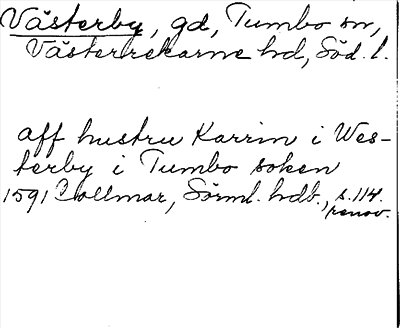 Västerby, gd, Tumbo sn,
Västerrekarne hd, Söd. l.
aff hustru Karrin i Wes-
terby i Tumbo soken
1591 Collmar, Sörml. hdb., s. 114.
renov.